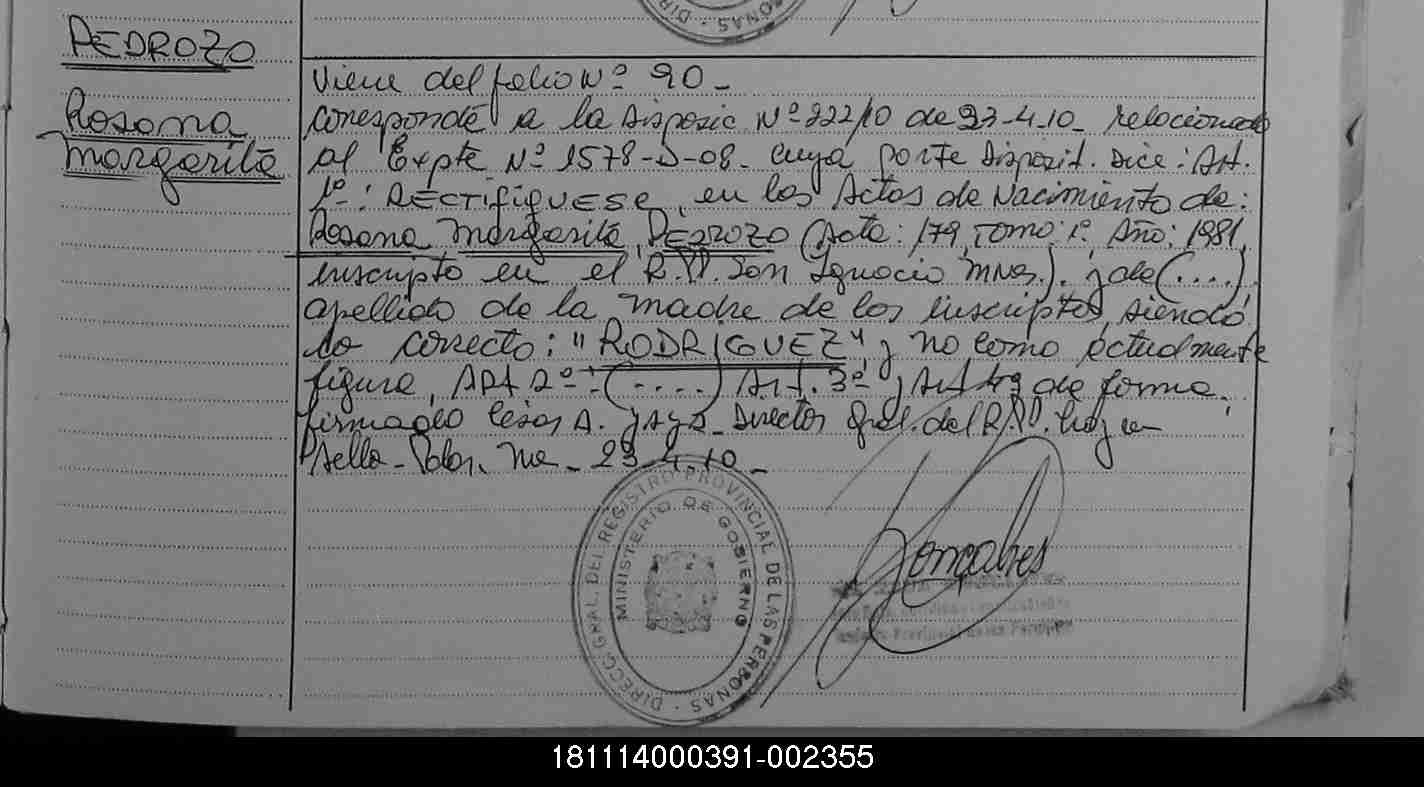 PEDROZO
Rosana
Margarita
Viene del folio Nº 90_
Corresponde a la Disposic. Nº 222/10 de 23-4-10_ relacionado
al Expte Nº 1578-D-08_ cuya parte Disposit. Dice: Art.
1º_: RECTIFIQUESE, en las Actas de Nacimiento de:
Rosana Margarita PEDROZO (Acta: 179, Tomo: 1º. Año: 1981,
inscripto en el R.P. San Ignacio Mnes.). y de (....)
apellido de la madre de los inscriptos, siendo
lo correcto: "RODRIGUEZ", y no como actualmente
figura, Art 2º: (....) Art. 3º, Art 4º de forma.
firmado A. Director Gral. del R.P. hay un
sello_ 23-4-10_
DIRECC. GRAL. DEL REGISTRO PROVINCIAL DE LAS PERSONAS
MINISTERIO DE GOBIERNO
Gonçalves
181114000391-002355